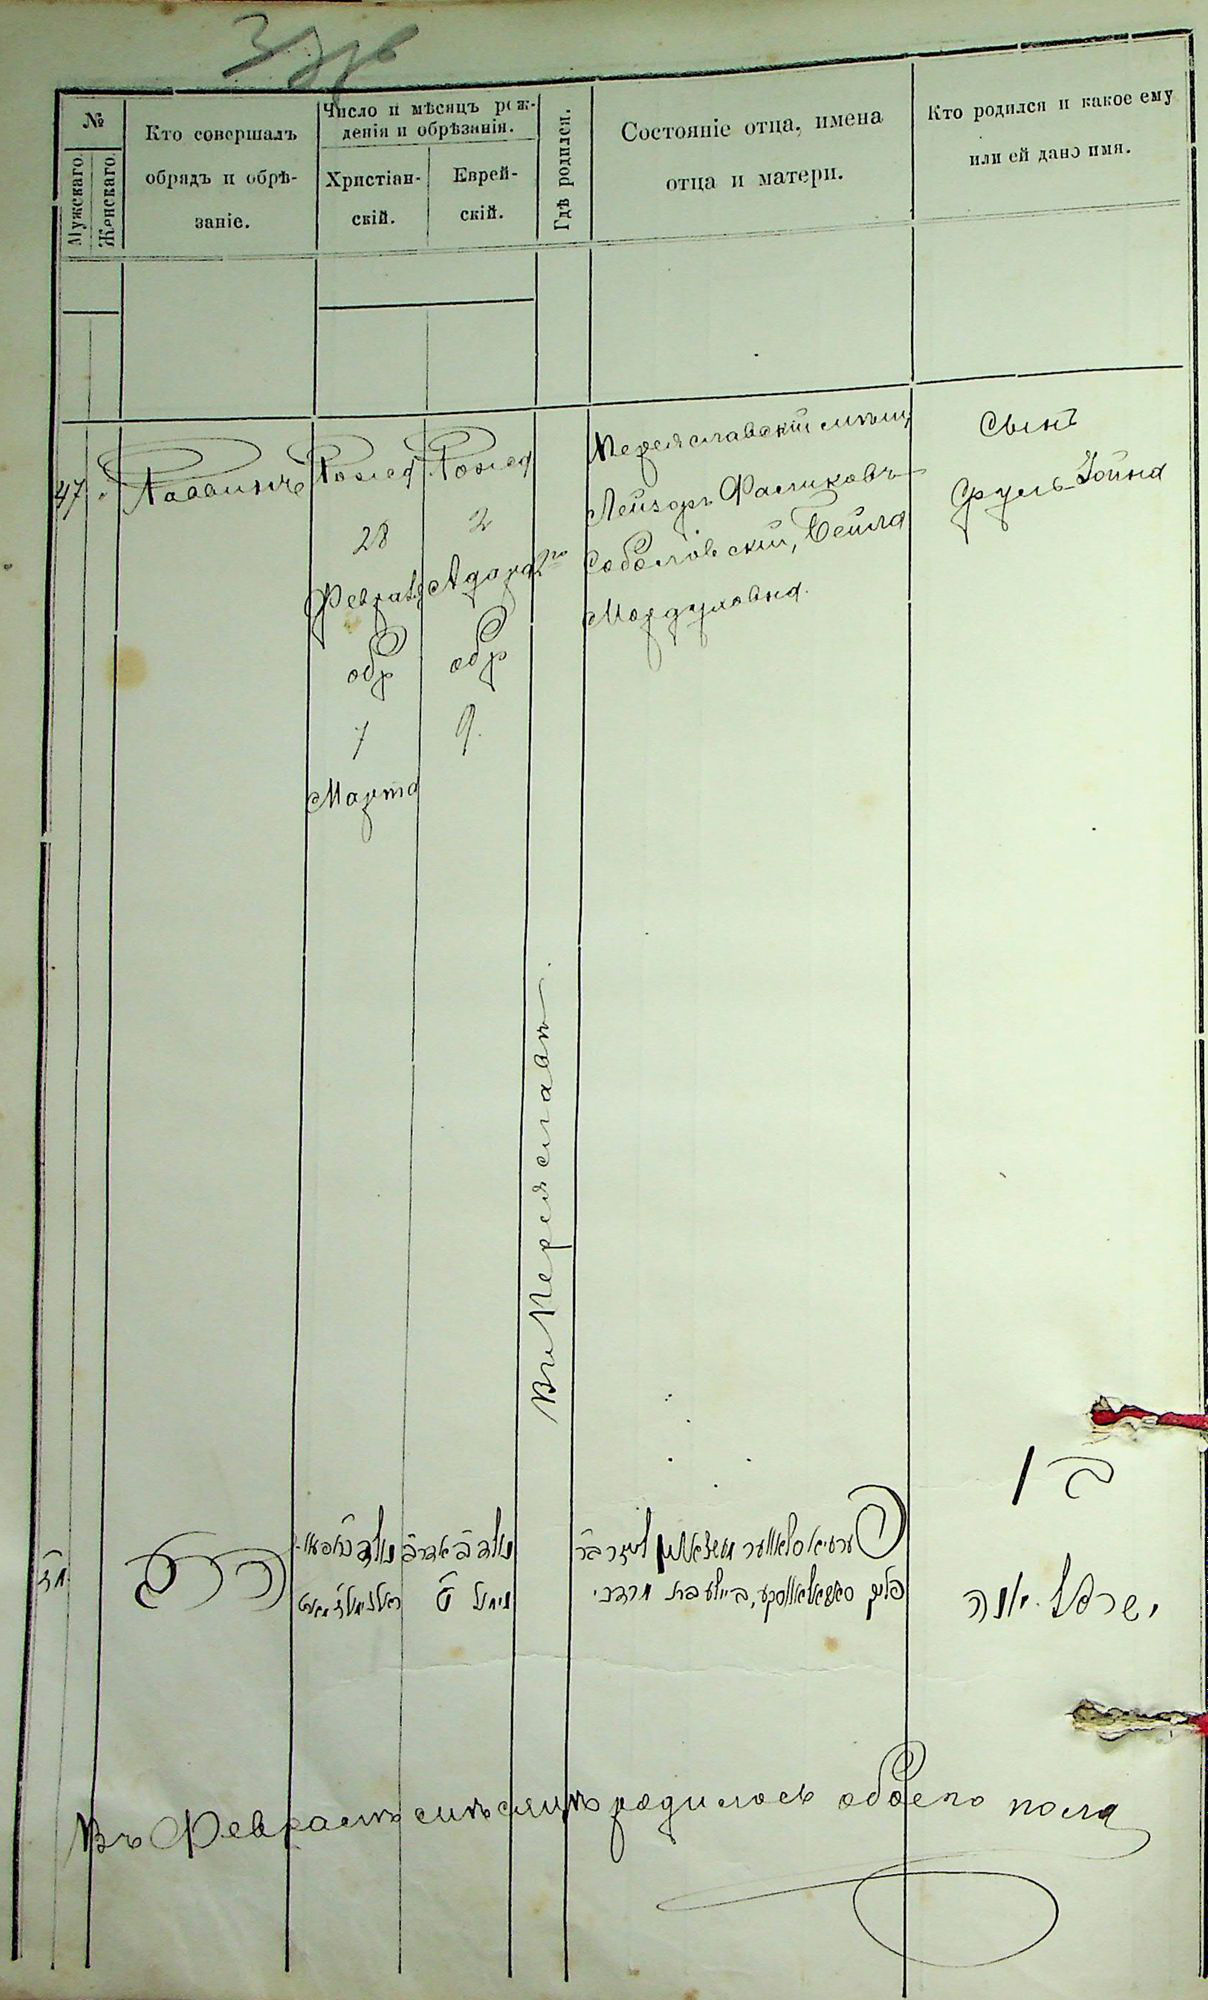 №
Мужскаго.
Женскаго.
Кто совершалъ
обрядъ и обрѣ-
заніе.
Число и мѣсяцъ рож-
денія и обрѣзанія.
Христіан-
скій.
Еврей-
скій.
Гдѣ родился.
Состояніе отца, имена
отца и матери.
Кто родился и какое ему
или ей дано имя.
47
Раввинъ
Рожд
28
Февраля
обр
7
Марта
Рожд
2
Адара 2го
обр
9.
Въ Переяславѣ.
Переяславскій мѣщ
Лейзоръ Фаликовъ
Соболовскій, Бейла
Мордуховна.
Сынъ
Сруль-Іойна
בן
ישראל יונה
Въ Февралѣ мѣсяцѣ родилось обоего пола